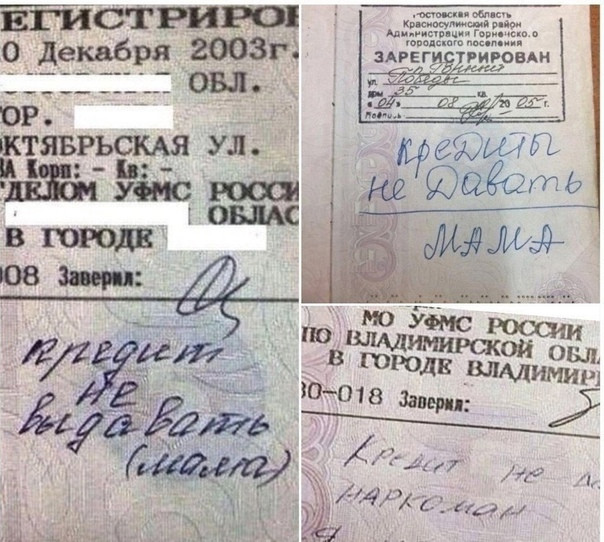 ЕГИСТРИРО
0 Декабря 2003г.
ОБЛ.
ОР.
КТЯБРЬСКАЯ УЛ.
ВА Корп: - Кв: -
ТДЕЛОМ УФМС РОССИ
ОБЛАС
В ГОРОДЕ
008 Заверил:
кредит
не
выдавать
(мама)
Ростовская область
Красносулинский район
Администрация Горненского
городского поселения
ЗАРЕГИСТРИРОВАН
ул. Победы
дом 35 кв.
« 04 » 08 2005 г.
Подпись
кредиты
не давать
МАМА
МО УФМС РОССИИ
ПО ВЛАДИМИРСКОЙ ОБЛ
В ГОРОДЕ ВЛАДИМИР
30-018 Заверил:
Кредит не
НАРКОМАН